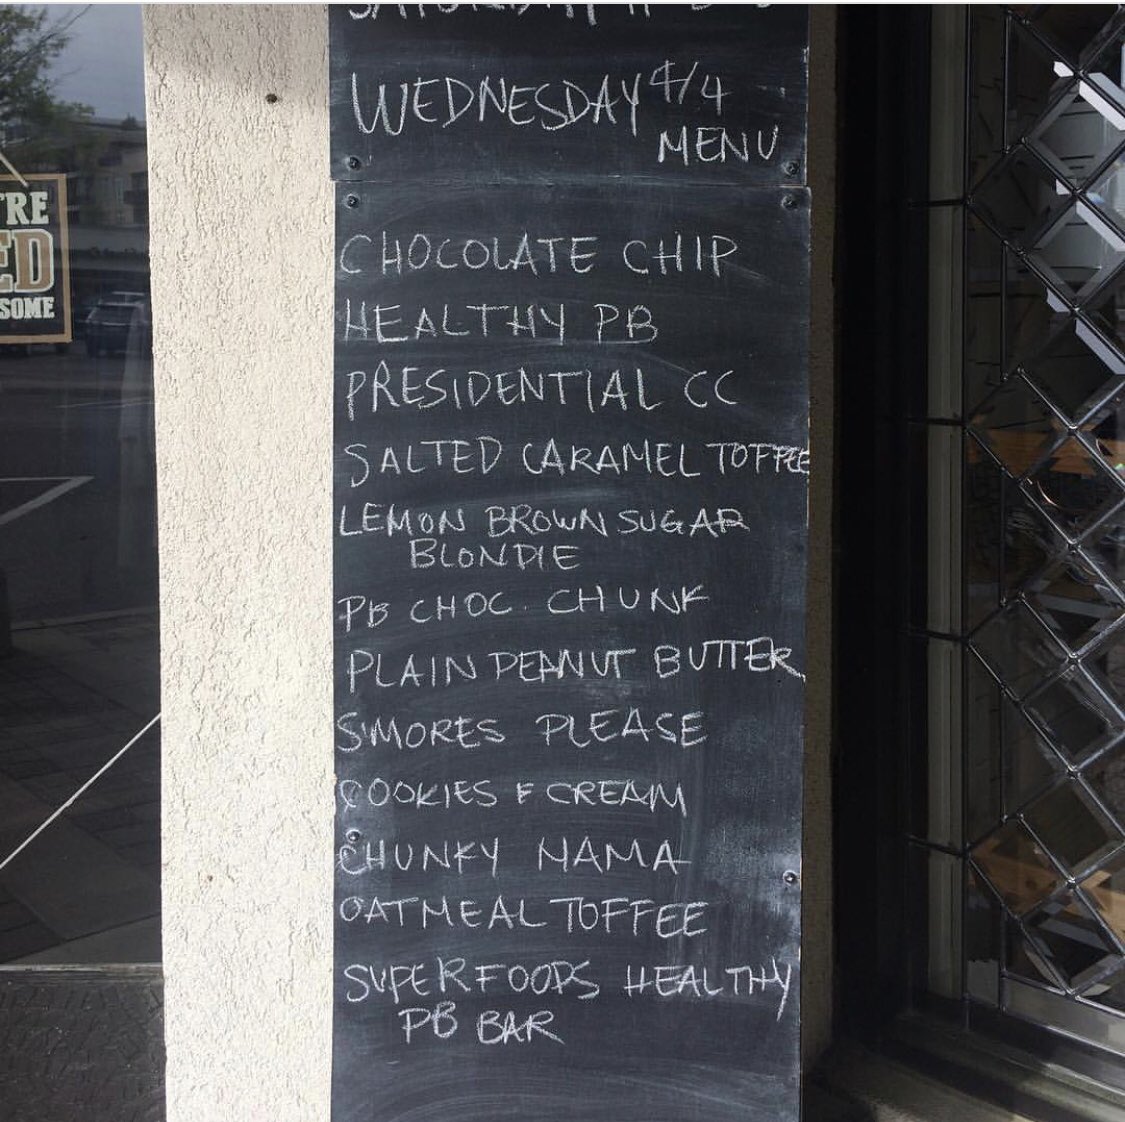 WEDNESDAY 4/4
MENU
CHOCOLATE CHIP
HEALTHY PB
PRESIDENTIAL CC
SALTED CARAMEL TOFFEE
LEMON BROWN SUGAR
BLONDIE
PB CHOC. CHUNK
PLAIN PEANUT BUTTER
S'MORES PLEASE
COOKIES & CREAM
CHUNKY MAMA
OATMEAL TOFFEE
SUPERFOODS HEALTHY
PB BAR
SOME